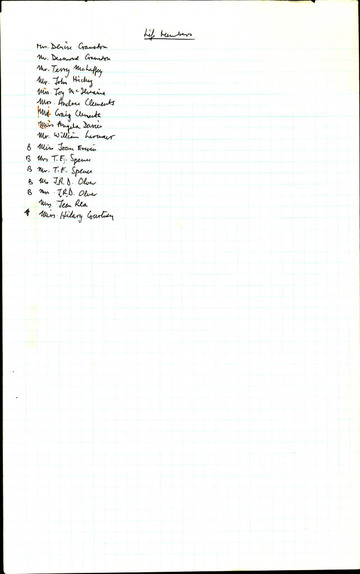 Life Members
Mrs. Denise Cranston
Mr. Desmond Cranston
Mr. Terry McLaffey
Mr. John Hickey
Mrs. Joy McIlwaine
Mrs. Andrea Clements
Mr. Craig Clements
Miss Angela Davies
Mr. William
B Miss Joan Erwin
B Mrs T.E. Spence
B Mr. T.E. Spence
B Mr J.R.D. Oliver
B Mrs. J.R.D. Oliver
Mrs Jean Rea
Miss Hilary Gourley